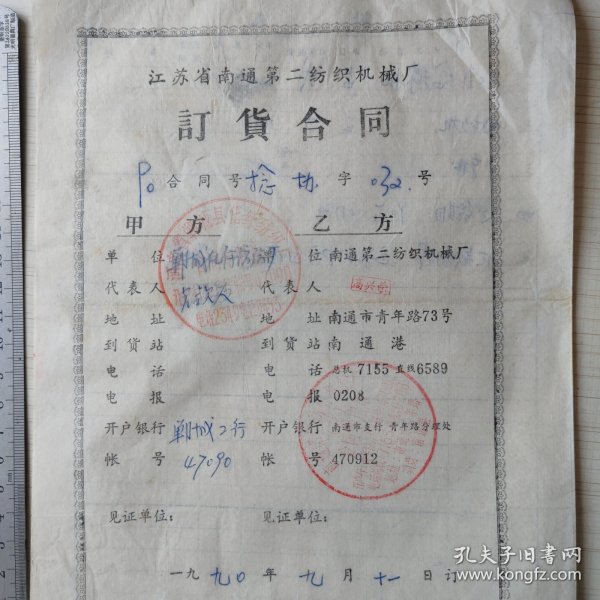 江苏省南通第二纺织机械厂
訂貨合同
90 合同号 捻协 字 032 号
甲方 乙方
单位 单位 南通第二纺织机械厂
代表人 代表人
地址 地址 南通市青年路73号
到货站 到货站 南通港
电话 电话 总机 7155 直线6589
电报 电报 0208
开户银行 郸城工行 开户银行 南通市支行 青年路分理处
帐号 47090 帐号 470912
见证单位: 见证单位:
一九九〇年九月十一日订
孔夫子旧书网
www.kongfz.com